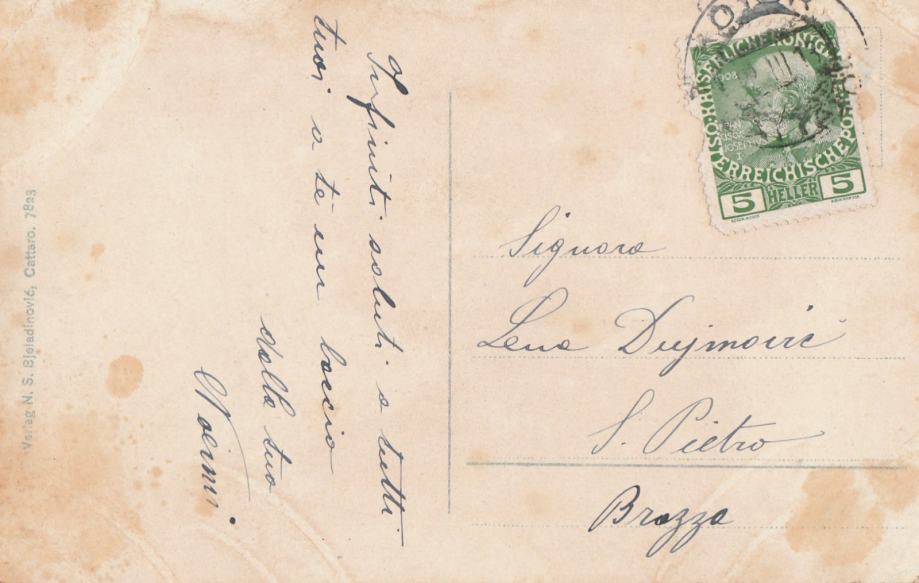 Infiniti saluti a tutti
tuoi a te un baccio
dalla tua
Noemi.
Signora
Lena Dujmović
S. Pietro
Brazza
1908
KAISERLICHE KÖNIGL
ÖSTERREICHISCHE POST
5 HELLER 5
Verlag N. S. Bjeladinović, Cattaro. 7823